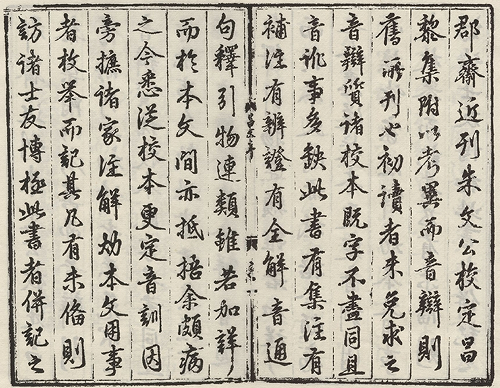 郡齋近刊朱文公校定昌
黎集附以考異而音辯則
舊所刊也初讀者未免求之
音辯質諸校本既字不盡同且
音訛事多缺此書有集注有
補注有辨證有全解音通
句釋引物連類雖若加詳
而於本文間亦抵捂余頗病
之今悉從校本更定音訓因
旁摭諸家注解劾本文用事
者枚举而記其凡有未備則
訪諸士友博極此書者併記之